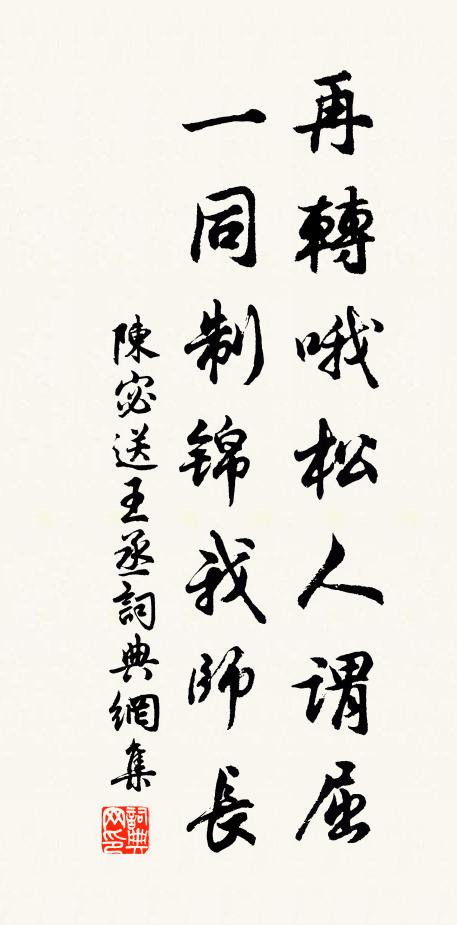 再轉哦松人謂屈
一同制錦我師長
陳宓送王丞詞典網集
詞典网印